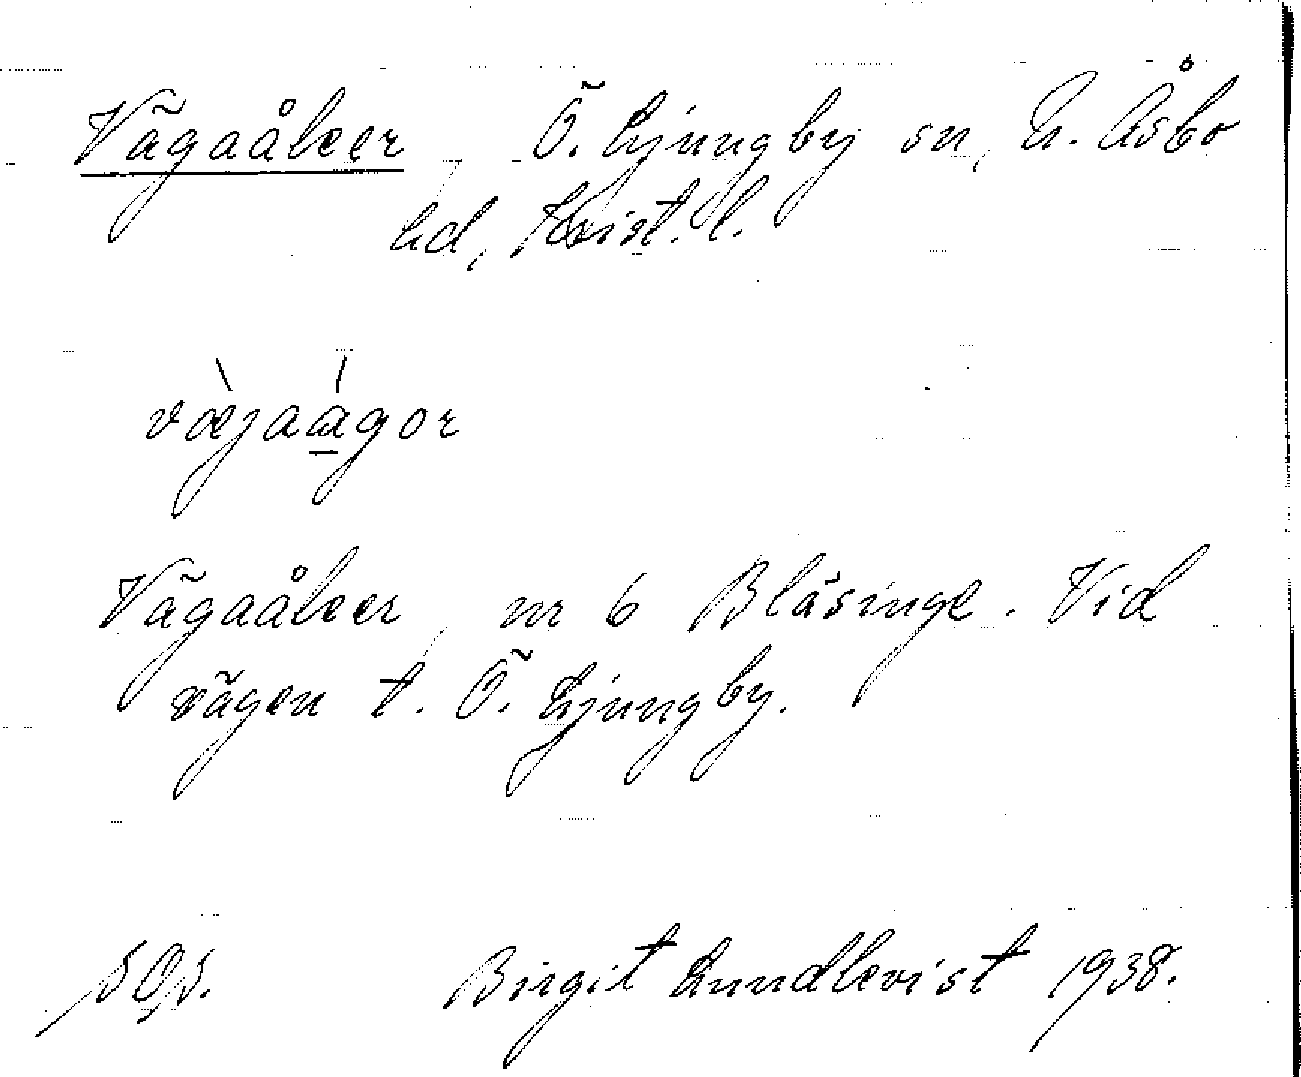 Vägaåker, Ö. Ljungby sn, N. Åsbo
hd, Krist. l.
væjaagor
Vägaåker, nr 6 Bläsinge. Vid
vägen t. Ö. Ljungby.
Birgit Lundkvist 1938.